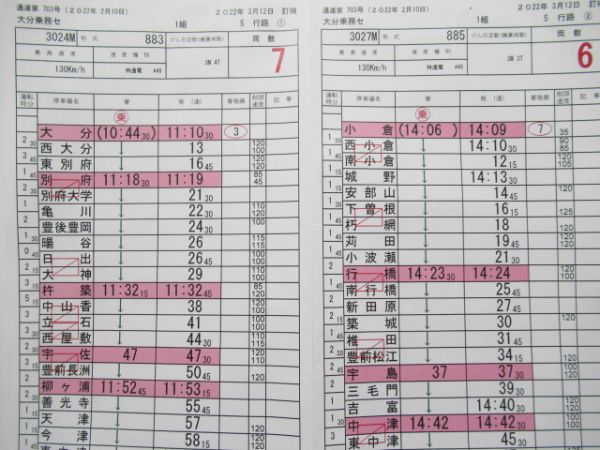 通達第 703号 （2022年 2月10日）
2022年 3月12日 訂補
大分乗務セ
1組 5 行路 ①
3024M 形式 883 けん引定数(換算両数) 両数
最高速度 速度種別
130Km/h 特通電 A40 3M 4T 7
運転時分 停車場名 着 発 (通) 着発線 制限速度 記事
乗
大分 (10:44 30) 11:10 30 3
西大分 ↓ 13
東別府 ↓ 16 45
別府 11:18 30 11:19
別府大学 ↓ 21 30
亀川 ↓ 22 30
豊後豊岡 ↓ 24 30
暘谷 ↓ 26
日出 ↓ 26 45
大神 ↓ 29
杵築 11:32 15 11:32 45
中山香 ↓ 38
立石 ↓ 41
西屋敷 ↓ 44 30
宇佐 47 47 30
豊前長洲 ↓ 50 45
柳ヶ浦 11:52 45 11:53 15
善光寺 ↓ 55 45
天津 ↓ 57
今津 ↓ 58 15
通達第 703号 （2022年 2月10日）
2022年 3月12日 訂補
大分乗務セ
1組 5 行路 ②
3027M 形式 885 けん引定数(換算両数) 両数
最高速度 速度種別
130Km/h 特通電 A40 3M 3T 6
運転時分 停車場名 着 発 (通) 着発線 制限速度 記事
乗
小倉 (14:06 ) 14:09 7
西小倉 ↓ 14:10 30
南小倉 ↓ 12 15
城野 ↓ 14:13 30
安部山 ↓ 14 45
下曽根 ↓ 16 15
朽網 ↓ 18
苅田 ↓ 19 45
小波瀬 ↓ 21 30
行橋 14:23 30 14:24
南行橋 ↓ 25 45
新田原 ↓ 27 45
築城 ↓ 30
椎田 ↓ 31 45
豊前松江 ↓ 34 15
宇島 37 37 30
三毛門 ↓ 39 30
吉富 ↓ 14:40 30
中津 14:42 14:42 30
東中津 ↓ 45 30